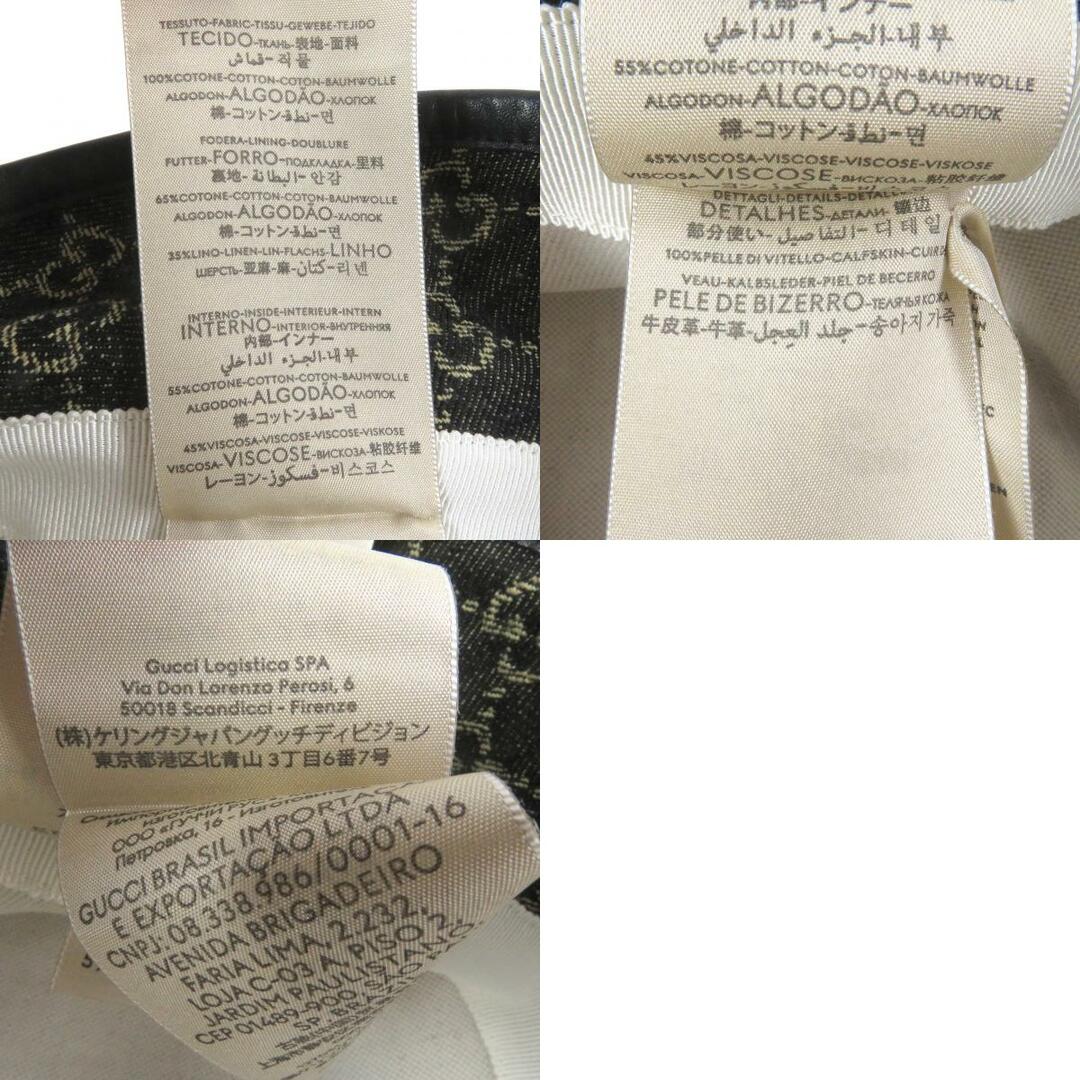 TESSUTO-FABRIC-TISSU-GEWEBE-TEJIDO
TECIDO-ТКАНЬ-表地-面料
قماش-직물
100%COTONE-COTTON-COTON-BAUMWOLLE
ALGODON-ALGODÃO-ХЛОПОК
棉-コットン-قطن-면
FODERA-LINING-DOUBLURE
FUTTER-FORRO-ПОДКЛАДКА-里料
裏地-البطانة-안감
65%COTONE-COTTON-COTON-BAUMWOLLE
ALGODON-ALGODÃO-ХЛОПОК
棉-コットン-قطن-면
35%LINO-LINEN-LIN-FLACHS-LINHO
ШЕРСТЬ-亚麻-麻-كتان-리넨
INTERNO-INSIDE-INTERIEUR-INTERN
INTERNO-INTERIOR-ВНУТРЕННЯЯ
内部-インナー
부내-الجزء الداخلي
55%COTONE-COTTON-COTON-BAUMWOLLE
ALGODON-ALGODÃO-ХЛОПОК
棉-コットン-قطن-면
45%VISCOSA-VISCOSE-VISCOSE-VISKOSE
VISCOSA-VISCOSE-ВИСКОЗА-粘胶纤维
レーヨン-فسكوز-비스코스
内部-インナー
부내-الجزء الداخلي
55%COTONE-COTTON-COTON-BAUMWOLLE
ALGODON-ALGODÃO-ХЛОПОК
棉-コットン-قطن-면
45%VISCOSA-VISCOSE-VISCOSE-VISKOSE
VISCOSA-VISCOSE-ВИСКОЗА-粘胶纤维
DETTAGLI-DETAILS-DETAILS
DETALHES-ДЕТАЛИ-镶边
部分使い-التفاصيل-디테일
100%PELLE DI VITELLO-CALFSKIN-CUIR
VEAU-KALBSLEDER-PIEL DE BECERRO
PELE DE BIZERRO-ТЕЛЯЧЬЯ КОЖА
牛皮革-牛革-جلد العجل-송아지가죽
Gucci Logistica SPA
Via Don Lorenzo Perosi, 6
50018 Scandicci - Firenze
(株)ケリングジャパングッチディビジョン
東京都港区北青山 3丁目6番7号
Петровка, 16 -
GUCCI BRASIL IMPORTAÇÃ
E EXPORTAÇÃO LTDA
CNPJ: 08.338.986/0001-16
AVENIDA BRIGADEIRO
FARIA LIMA, 2.232,
LOJA C-03 A, PISO 2,
JARDIM PAULISTANO,
CEP 01489-900, SÃO PA
SP, BRAZIL